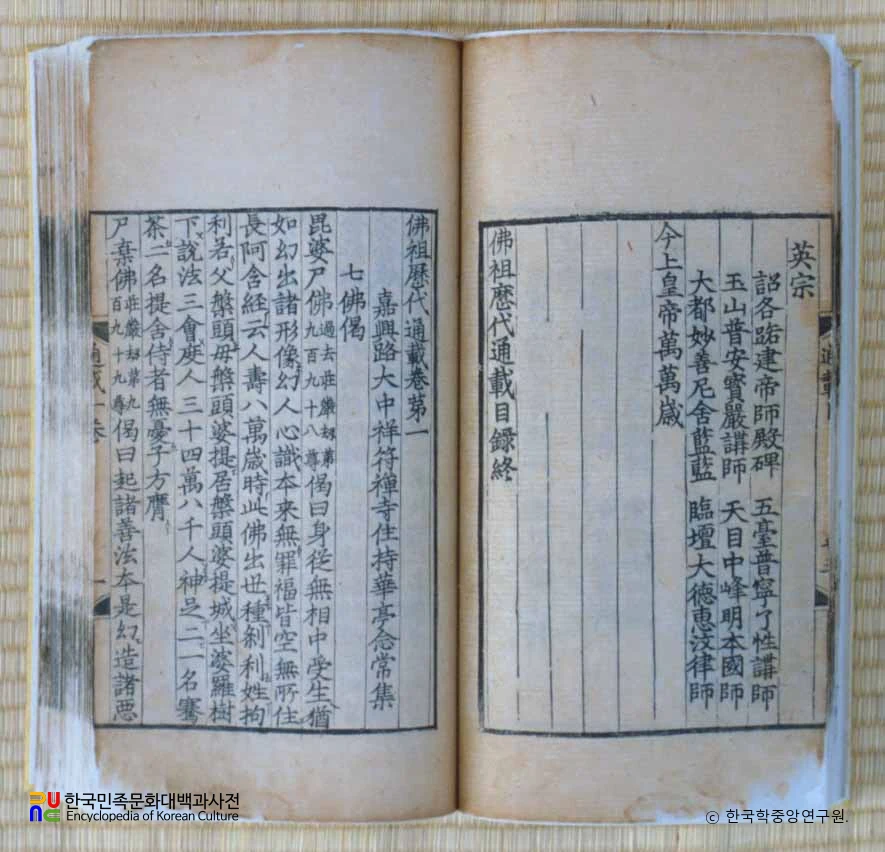 英宗
詔各路建帝師殿碑 五臺普寧了性講師
玉山普安寶嚴講師 天目中峰明本國師
大都妙善尼舍藍藍 臨壇大德惠汶律師
今上皇帝萬萬歲
佛祖歷代通載目錄終
佛祖歷代通載卷第一
嘉興路大中祥符禪寺住持華亭念常集
七佛偈
毘婆尸佛過去莊嚴劫第九百九十八尊偈曰身從無相中受生猶
如幻出諸形像幻人心識本來無罪福皆空無所住
長阿含經云人壽八萬歲時此佛出世種剎利姓拘
利若父槃頭母槃頭婆提居槃頭婆提城坐婆羅樹
下說法三會度人三十四萬八千人神足二一名騫
茶二名提舍侍者無憂子方膺
尸棄佛莊嚴劫第九百九十九尊偈曰起諸善法本是幻造諸惡
通載一卷
한국민족문화대백과사전
Encyclopedia of Korean Culture
© 한국학중앙연구원.